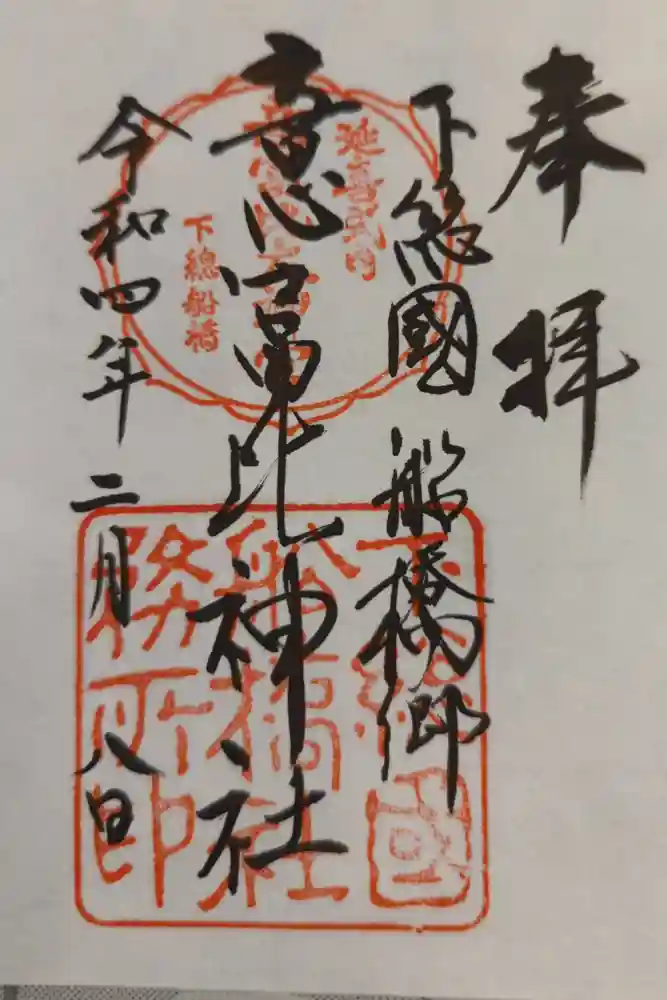 奉拝
下総國 船橋郷
意富比神社
令和四年 二月 八日
延喜式内
下總船橋
下總國
船橋社
務所印